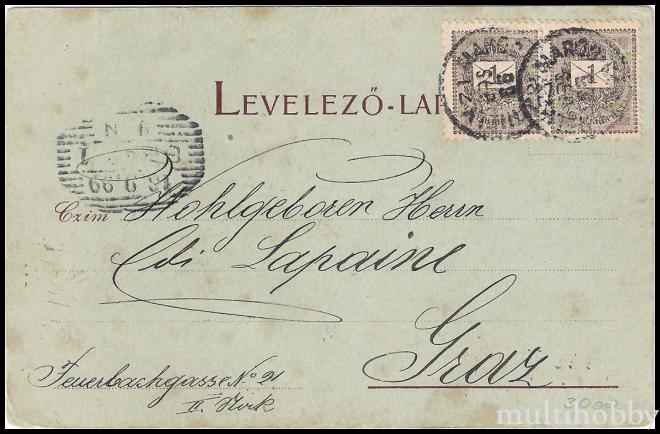 LEVELEZŐ-LAP
1 1
MAROS
Czim Wohlgeboren Herrn
Edi Lapaine
Graz
Feuerbachgasse No 21
II. Stock
3000
multihobby